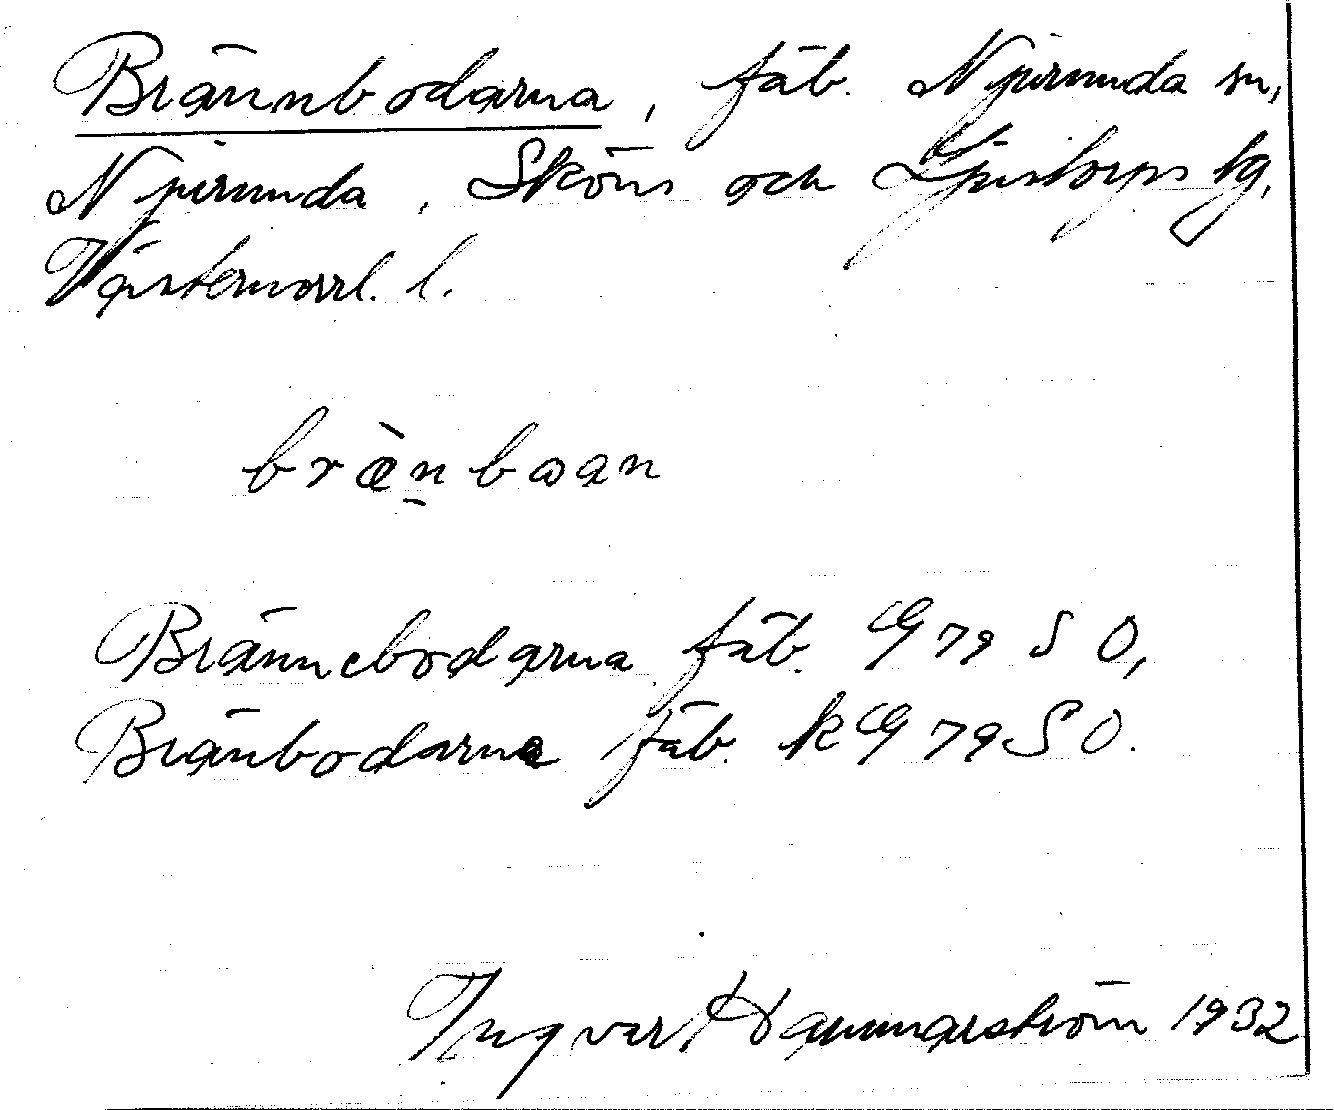 Brännbodarna, fäb. Njurunda sn,
Njurunda, Sköns och Ljustorps tg,
Västernorrl. l.
bræ̀n̠bɷan
Brännebodarna fäb. G 79 S O,
Bränbodarna fäb. k G 79 S O.
Ingvar Hammarström 1932